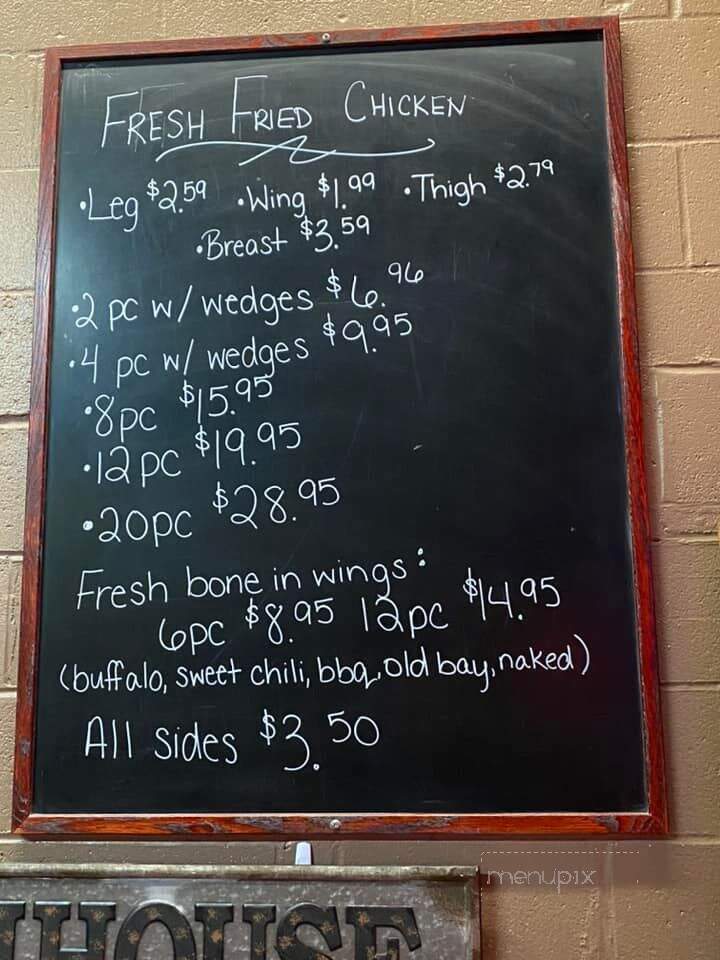 FRESH FRIED CHICKEN
•Leg $2.59 •Wing $1.99 •Thigh $2.79
•Breast $3.59
•2 pc w/ wedges $6.96
•4 pc w/ wedges $9.95
•8pc $15.95
•12pc $19.95
•20pc $28.95
Fresh bone in wings:
6pc $8.95 12pc $14.95
(buffalo, sweet chili, bbq, old bay, naked)
All sides $3.50
menupix
HOUSE